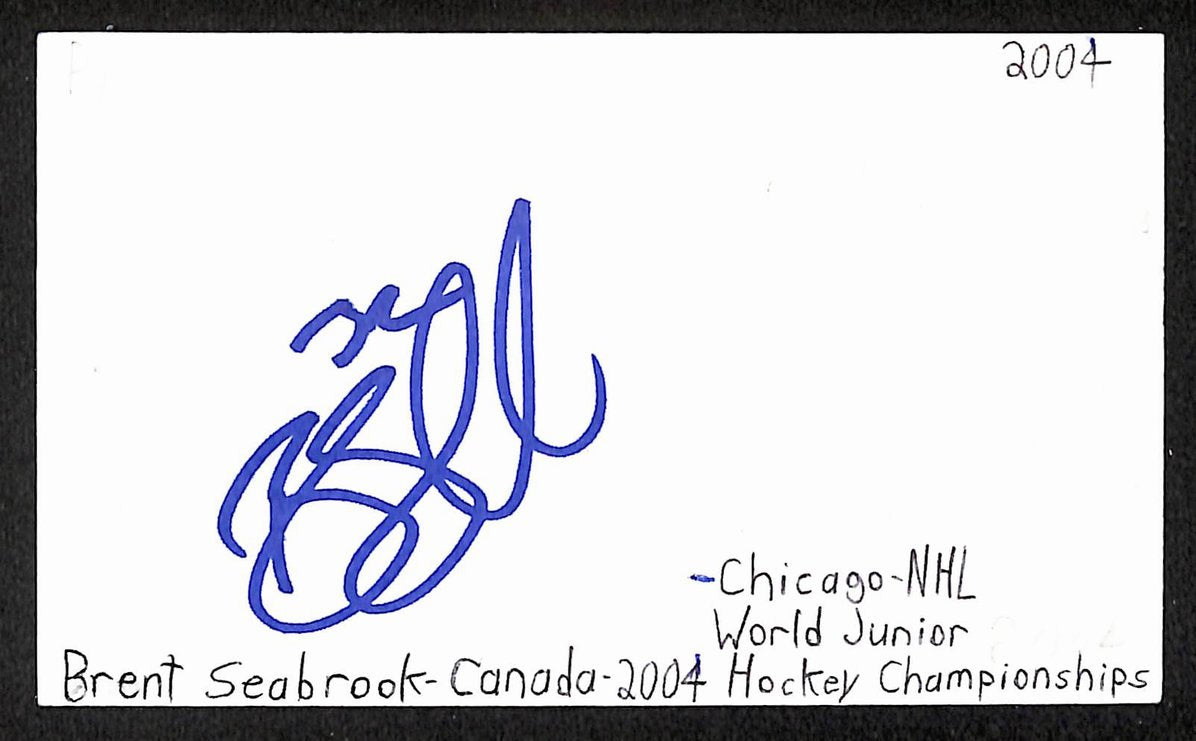 2004
-Chicago-NHL
World Junior
Brent Seabrook-Canada-2004 Hockey Championships